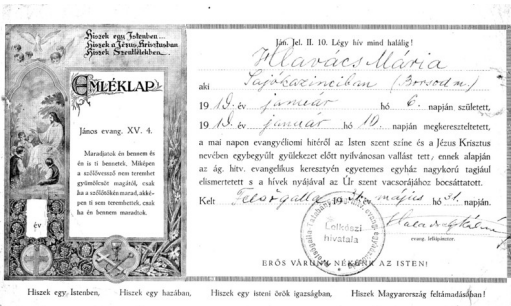 Hiszek egy Istenben...
Hiszek a Jézus Krisztusban
Hiszek Szentlélekben...
EMLÉKLAP
János evang. XV. 4.
Maradjatok én bennem és
én is ti bennetek. Miképen
a szőlővessző nem teremhet
gyümölcsöt magától, csak
ha a szőlőtőkén marad, akké-
pen ti sem teremhettek, csak
ha én bennem maradtok.
év
Ján. Jel. II. 10. Légy hív mind halálig!
Hlavács Mária
aki Sajókazincban (Borsod m.)
19 19. év január hó 6. napján született,
19 19. év január hó 10. napján megkereszteltetett,
a mai napon evangyéliomi hitéről az Isten szent színe és a Jézus Krisztus
nevében egybegyűlt gyülekezet előtt nyilvánosan vallást tett, ennek alapján
az ág. hitv. evangelikus keresztyén egyetemes egyház nagykorú tagjául
elismertetett s a hívek nyájával az Úr szent vacsorájához bocsáttatott.
Kelt Felsőgalla, 19 év május hó 31. napján.
Lelkészi
hivatala
evang. lelkipásztor.
ERŐS VÁRUNK NÉKÜNK AZ ISTEN!
Hiszek egy Istenben, Hiszek egy hazában, Hiszek egy isteni örök igazságban, Hiszek Magyarország feltámadásában!